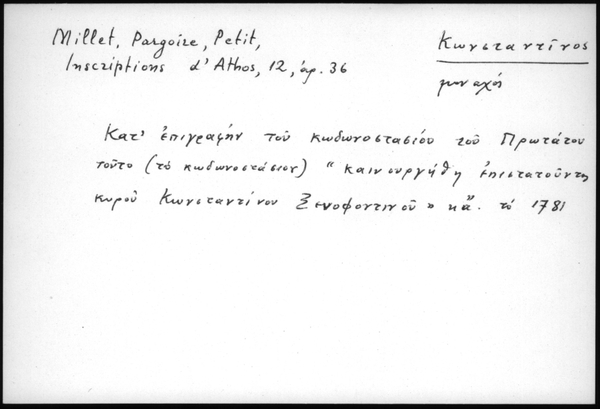 Millet, Pargoire, Petit,
Inscriptions d'Athos, 12, ἀρ. 36
Κωνσταντῖνος
μοναχός
Κατ' ἐπιγραφήν τοῦ κωδωνοστασίου τοῦ Πρωτάτου
τοῦτο (τό κωδωνοστάσιον) "καινουργήθη ἐπιστατοῦντος
κυροῦ Κωνσταντίνου Ξενοφοντινοῦ" κἄ. τό 1781